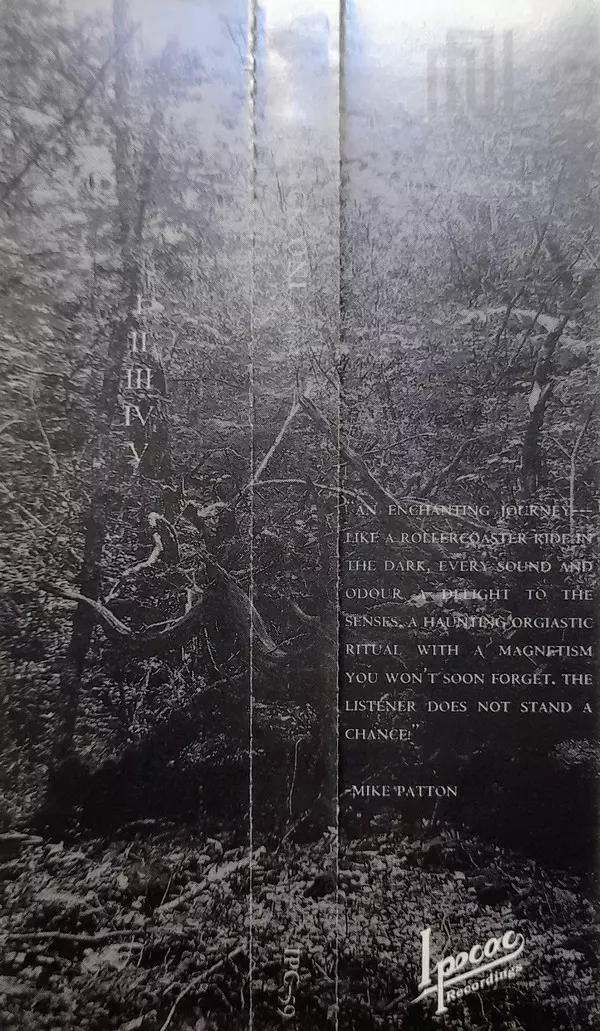 I
II
III
IV
V
"AN ENCHANTING JOURNEY—
LIKE A ROLLERCOASTER RIDE IN
THE DARK, EVERY SOUND AND
ODOUR A DELIGHT TO THE
SENSES. A HAUNTING ORGIASTIC
RITUAL WITH A MAGNETISM
YOU WON'T SOON FORGET. THE
LISTENER DOES NOT STAND A
CHANCE!"
-MIKE PATTON
IPC-59
Ipecac
Recordings